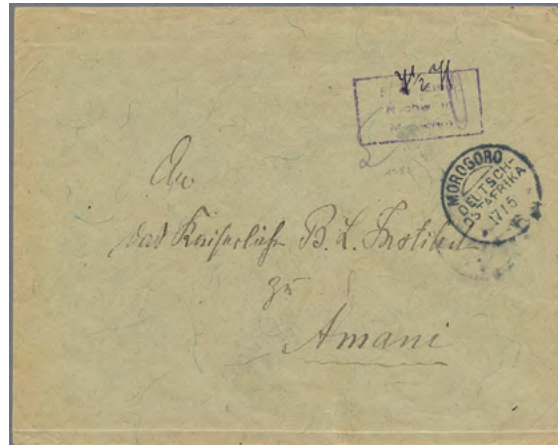 7½ H
MOROGORO
DEUTSCH-
OSTAFRIKA
17/5
An
das Kaiserliche B. L. Institut
zu
Amani